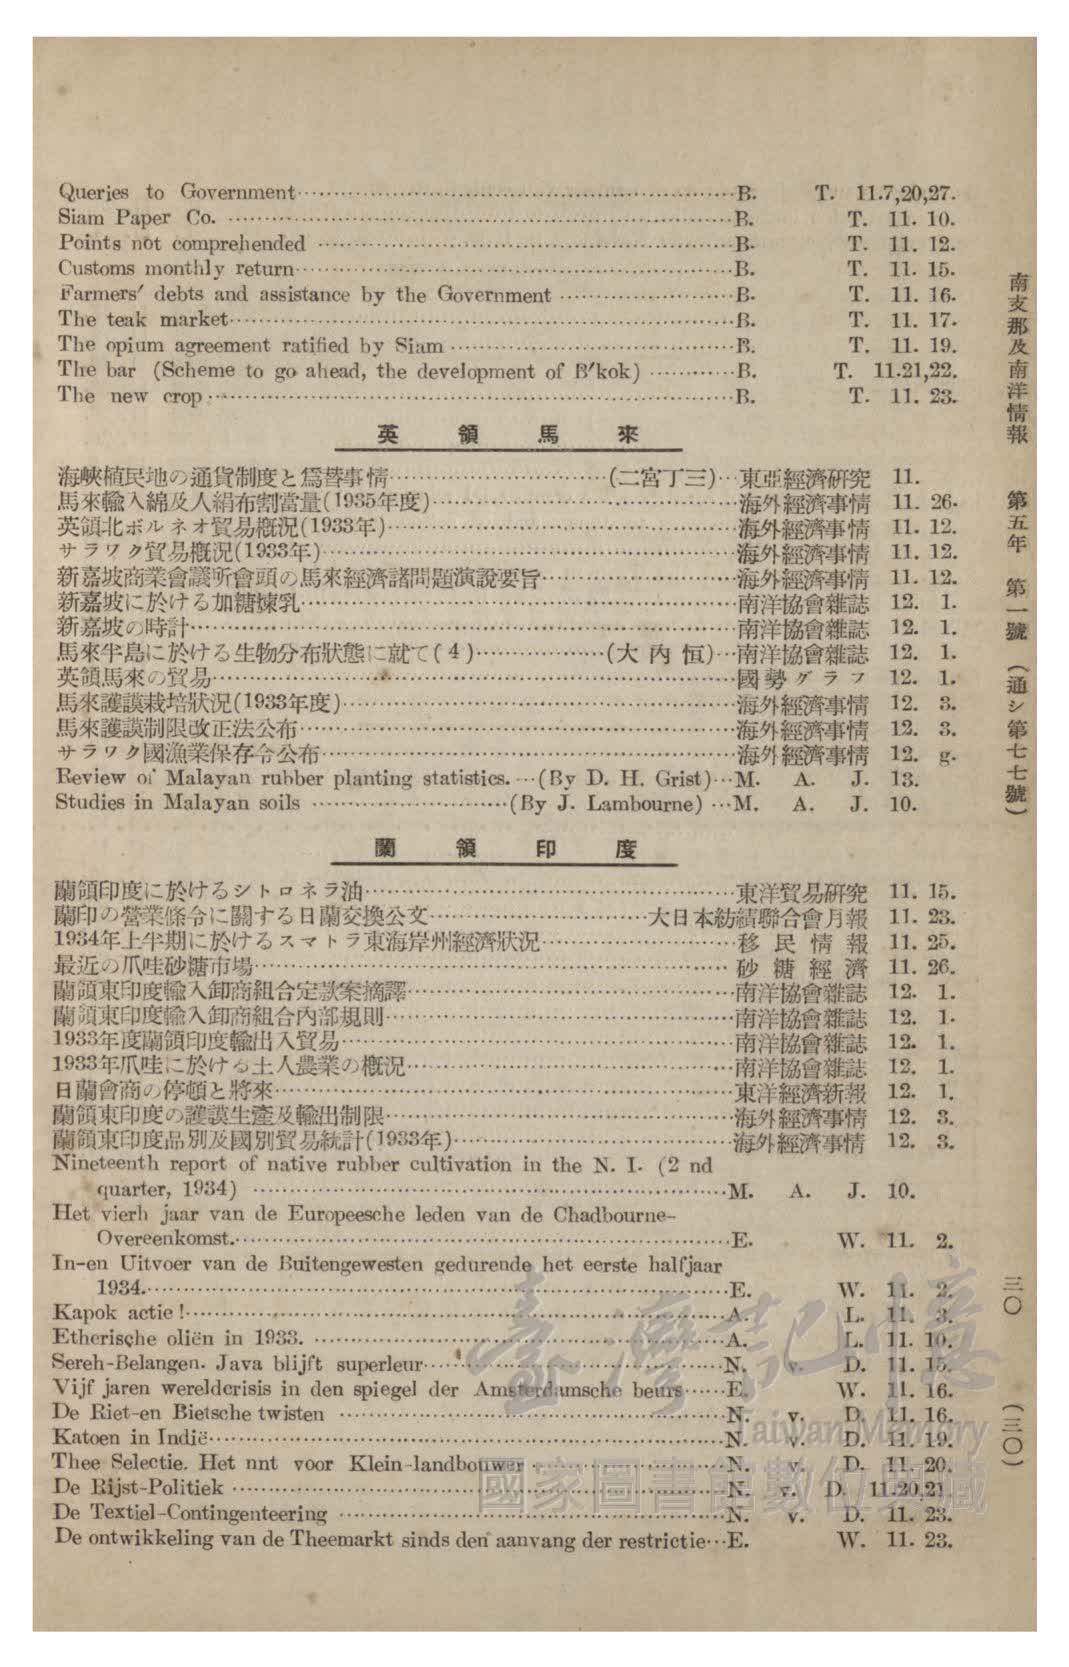 Queries to Government……B. T. 11.7,20,27.
Siam Paper Co. ……B. T. 11. 10.
Points not comprehended ……B. T. 11. 12.
Customs monthly return……B. T. 11. 15.
Farmers' debts and assistance by the Government ……B. T. 11. 16.
The teak market……B. T. 11. 17.
The opium agreement ratified by Siam……B. T. 11. 19.
The bar (Scheme to go ahead, the development of B'kok) ……B. T. 11.21,22.
The new crop……B. T. 11. 23.
英領馬來
海峽植民地の通貨制度と爲替事情……(二宮丁三)…東亞經濟硏究 11.
馬來輸入綿及人絹布割當量(1935年度)……海外經濟事情 11. 26.
英領北ボルネオ貿易槪況(1933年)……海外經濟事情 11. 12.
サラワク貿易槪況(1933年)……海外經濟事情 11. 12.
新嘉坡商業會議所會頭の馬來經濟諸問題演說要旨……海外經濟事情 11. 12.
新嘉坡に於ける加糖煉乳……南洋協會雜誌 12. 1.
新嘉坡の時計……南洋協會雜誌 12. 1.
馬來半島に於ける生物分布狀態に就て(4)……(大内恒)…南洋協會雜誌 12. 1.
英領馬來の貿易……國勢グラフ 12. 1.
馬來護謨栽培狀況(1933年度)……海外經濟事情 12. 3.
馬來護謨制限改正法公布……海外經濟事情 12. 3.
サラワク國漁業保存令公布……海外經濟事情 12. g.
Review of Malayan rubber planting statistics. …(By D. H. Grist)…M. A. J. 13.
Studies in Malayan soils ……(By J. Lambourne) …M. A. J. 10.
蘭領印度
蘭領印度に於けるシトロネラ油……東洋貿易硏究 11. 15.
蘭印の營業條令に關する日蘭交換公文……大日本紡績聯合會月報 11. 23.
1934年上半期に於けるスマトラ東海岸州經濟狀況……移民情報 11. 25.
最近の爪哇砂糖市場……砂糖經濟 11. 26.
蘭領東印度輸入卸商組合定款案摘譯……南洋協會雜誌 12. 1.
蘭領東印度輸入卸商組合內部規則……南洋協會雜誌 12. 1.
1933年度蘭領印度輸出入貿易……南洋協會雜誌 12. 1.
1933年爪哇に於ける土人農業の槪況……南洋協會雜誌 12. 1.
日蘭會商の停頓と將來……東洋經濟新報 12. 1.
蘭領東印度の護謨生產及輸出制限……海外經濟事情 12. 3.
蘭領東印度品別及國別貿易統計(1933年)……海外經濟事情 12. 3.
Nineteenth report of native rubber cultivation in the N. I. (2 nd
quarter, 1934) ……M. A. J. 10.
Het vierh jaar van de Europeesche leden van de Chadbourne-
Overeenkomst.……E. W. 11. 2.
In-en Uitvoer van de Buitengewesten gedurende het eerste halfjaar
1934.……E. W. 11. 2.
Kapok actie!……A. L. 11. 3.
Etherische oliën in 1933. ……A. L. 11. 10.
Sereh-Belangen. Java blijft superleur……N. v. D. 11. 15.
Vijf jaren wereldcrisis in den spiegel der Amsterdamsche beurs……E. W. 11. 16.
De Riet-en Bietsche twisten ……N. v. D. 11. 16.
Katoen in Indië……N. v. D. 11. 19.
Thee Selectie. Het nnt voor Klein-landbouwer ……N. v. D. 11. 20.
De Rijst-Politiek ……N. v. D. 11.20,21.
De Textiel-Contingenteering ……N. v. D. 11. 23.
De ontwikkeling van de Theemarkt sinds den aanvang der restrictie…E. W. 11. 23.
南支那及南洋情報 第五年 第一號 (通シ第七七號)
三〇 (三〇)
臺灣記憶
Taiwan Memory
國家圖書館數位典藏